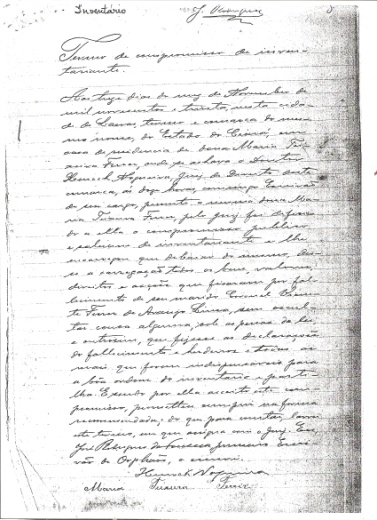 Inventario
Termo de compromisso de inven-
tariante.
Aos treze dias do mez de Novembro de
mil novecentos e trinta, nesta cida-
de de Lavras, termo e comarca do mes-
mo nome, do Estado do Ceará, em
casa de residencia de dona Maria Tei-
xeira Ferrer, onde se achava o Doutor
Henock Nogueira, Juiz de Direito desta
comarca, ás doze horas, commigo Escrivão
de seu cargo, presente a mesma dona Ma-
ria Teixeira Ferrer, pelo Juiz foi deferi-
do a ella o compromisso
de inventariante e lhe
encarregou que debaixo do mesmo, des-
se a carregação todos os bens, valores,
direitos e acções que ficaram por fal-
lecimento de seu marido Coronel
Ferrer de Araujo Lima, sem occul-
tar cousa alguma, sob as penas da lei
e outrosim, que fizesse as declarações
do fallecimento e herdeiros e todas as
mais que forem indispensaveis para
a bôa ordem do inventario e parti-
lha. E sendo por ella acceito este com-
promisso, prometteu cumprir na forma
recommendada; do que para constar, lavrei
este termo, em que assigna com o Juiz. Eu,
José Rodrigues da Fonseca, primeiro Escri-
vão de Orphãos, o escrevi.
Henock Nogueira
Maria Teixeira Ferrer